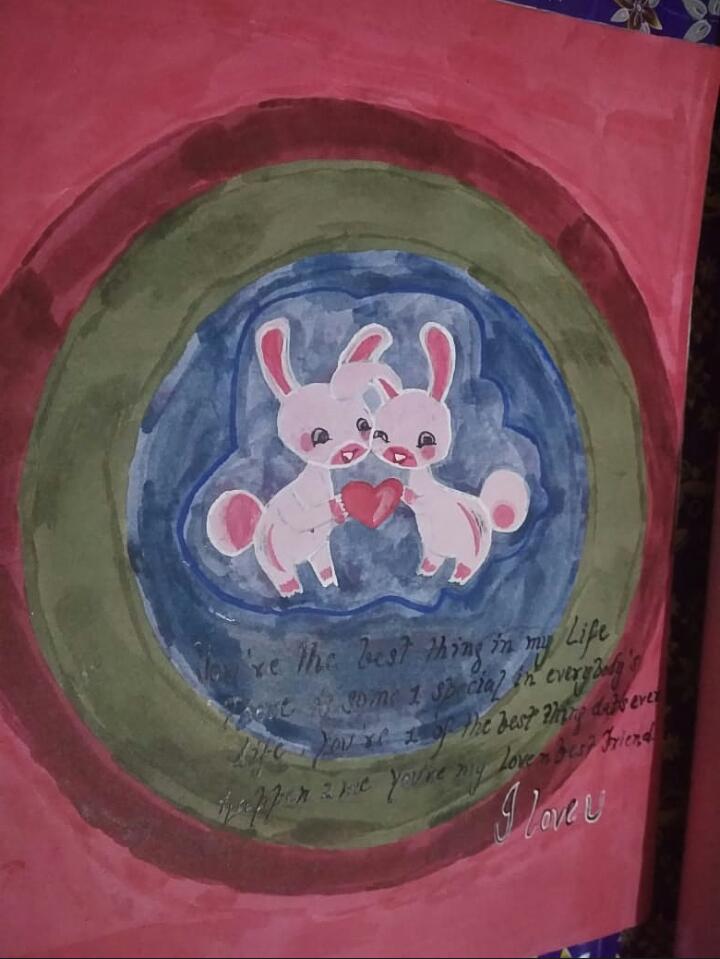 You're the best thing in my Life
There is some 1 special in everybody's
Life, you're 1 of the best thing dats ever
happen 2 me you're my love n best friend
I love u